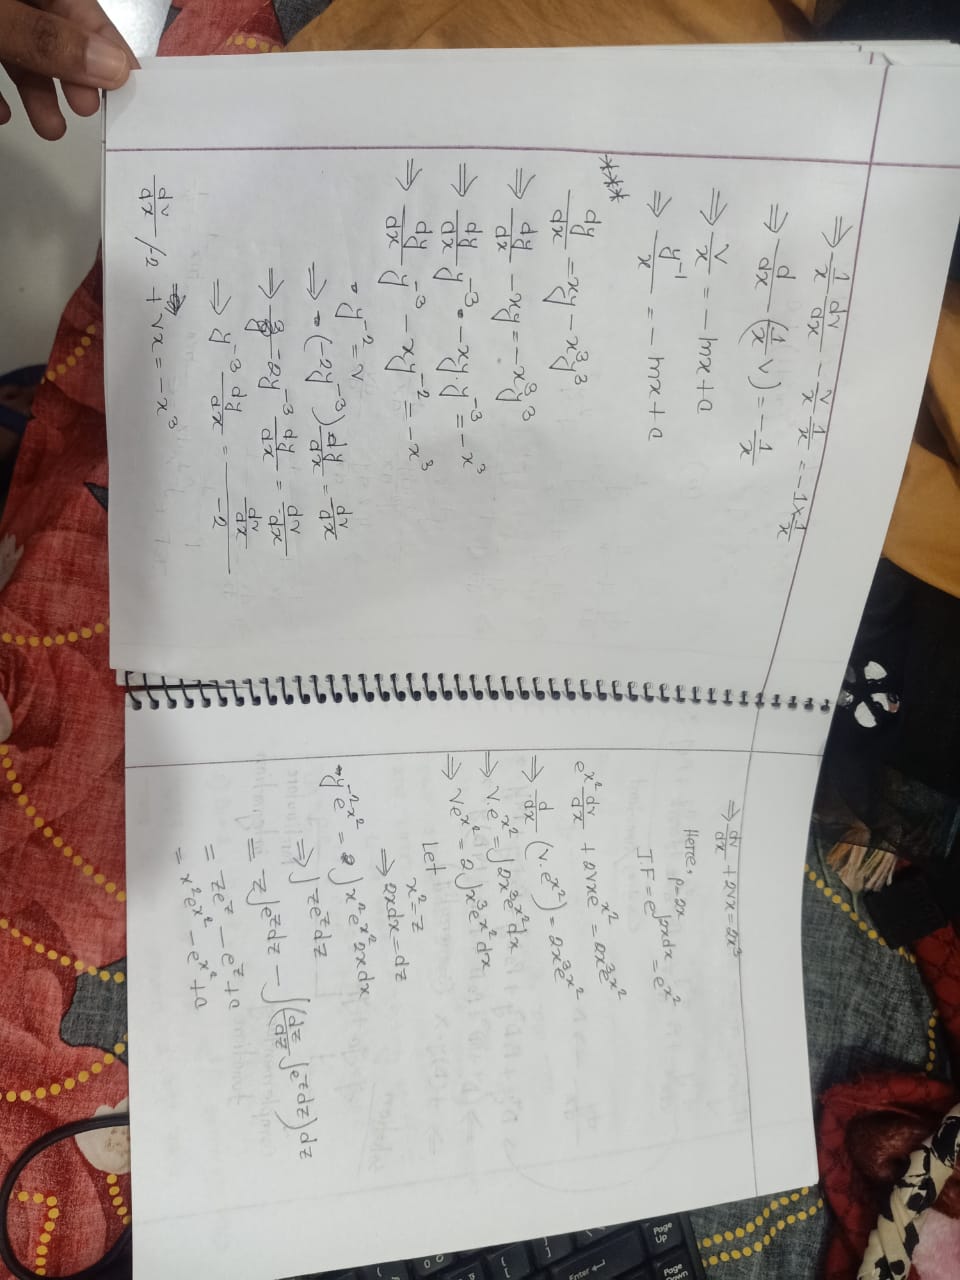 ⇒ 1/x dv/dx − v/x 1/x = −1×1/x
⇒ d/dx (1/x v) = −1/x
⇒ v/x = − lnx + c
⇒ y⁻¹/x = − lnx + c
***
dy/dx = xy − x³y³
⇒ dy/dx − xy = −x³y³
⇒ dy/dx y⁻³ − xy.y⁻³ = −x³
⇒ dy/dx y⁻³ − xy⁻² = −x³
y⁻² = v
⇒ (−2y⁻³) dy/dx = dv/dx
⇒ −2y⁻³ dy/dx = dv/dx
⇒ y⁻³ dy/dx = dv/dx / −2
dv/dx /−2 + vx = −x³
⇒ dv/dx + 2vx = 2x³
Here,
P = 2x
I.F = e^∫2xdx = e^x²
e^x² dv/dx + 2vxe^x² = 2x³e^x²
⇒ d/dx (v.e^x²) = 2x³e^x²
⇒ v.e^x² = ∫2x³e^x²dx
⇒ ve^x² = 2∫x³e^x²dx
Let
x² = z
⇒ 2xdx = dz
y⁻²e^x² = ∫x²e^x²2xdx
⇒ ∫ze^zdz
= z∫e^zdz − ∫(dz/dz ∫e^zdz)dz
= ze^z − e^z + c
= x²e^x² − e^x² + c